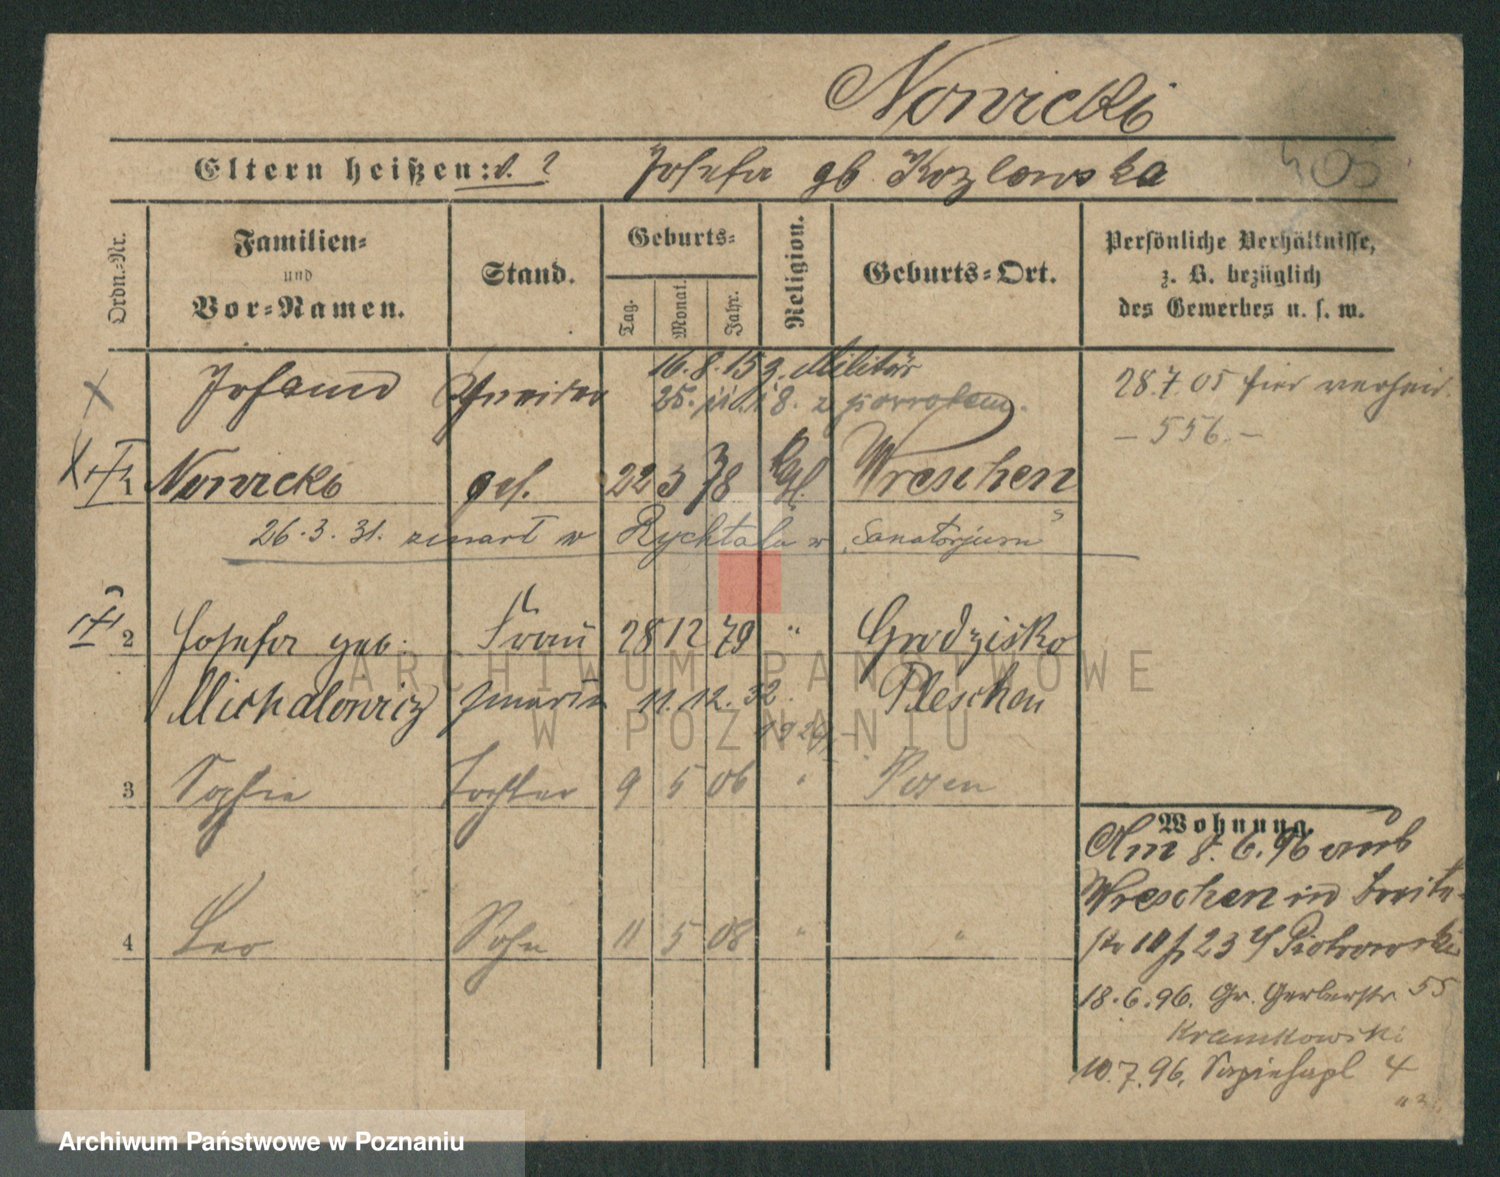 Nowicki
Eltern heißen: v. ? Josefa gb. Kozlowska
405
Ordn.-Nr.
Familien-
und
Vor-Namen.
Stand.
Geburts-
Tag. Monat. Jahr.
Religion.
Geburts-Ort.
Persönliche Verhältnisse,
z. B. bezüglich
des Gewerbes u. s. w.
16. 8. 15 z. Militär
Johann
25. 18. z powrotem.
28.7.05 hier verheir.
– 556. –
1 Nowicki ges. 22 3 78 Kth. Wreschen
26.3.31. zmarł w Rychtalu w „Sanatorjum"
2 Josefa geb. Frau 28 12 79 " Grodzisko
Michalowicz zmarła 11. 12. 32 Pleschen
3 Sophie Tochter 9 5 06 " Posen
4 Leo Sohn 11 5 08 " "
Wohnung.
Am 8. 6. 96 aus
Wreschen in Breite-
str 10 23 Piotrowski
18.6.96. Gr. Gerberstr. 55
Kramkowski
10.7.96. Sapiehapl 4
ARCHIWUM PAŃSTWOWE
W POZNANIU
Archiwum Państwowe w Poznaniu